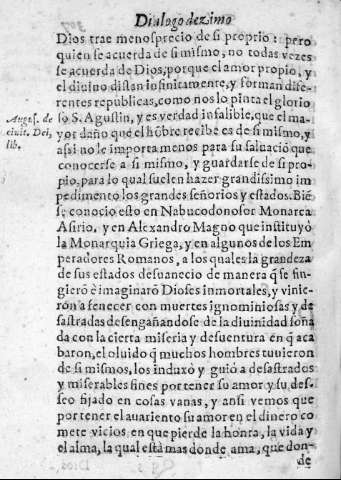 Dialogo dezimo
Dios trae menosprecio de si proprio: pero
quien se acuerda de si mismo, no todas vezes
se acuerda de Dios, porque el amor propio, y
el diuino distan infinitamente, y forman dife-
rentes republicas, como nos lo pinta el glorio
August. de
ciuit. Dei,
lib.
so S. Agustin, y es verdad infalible, que el ma-
yor daño que el hõbre recibe es de si mismo, y
assi no le importa menos para su saluació que
conocerse a si mismo, y guardarse de si pro-
pio, para lo qual suelen hazer grandissimo im
pedimento los grandes señorios y estados. Bié
se conocio esto en Nabucodonosor Monarca
Asirio, y en Alexandro Magno que instituyò
la Monarquia Griega, y en algunos de los Em
peradores Romanos, a los quales la grandeza
de sus estados desuanecio de manera q̃ se fin-
gierõ è imaginarõ Dioses inmortales, y vinie-
rõn a fenecer con muertes ignominiosas y de
sastradas desengañandose de la diuinidad soña
da con la cierta miseria y desuentura en q̃ aca
baron, el oluido q̃ muchos hombres tuuieron
de si mismos, los induxò y guiò a desastrados
y miserables fines por tener su amor y su des-
seo fijado en cosas vanas, y ansi vemos que
por tener el auariento su amor en el dinero co
mete vicios en que pierde la honra, la vida y
el alma, la qual està mas donde ama, que don-
de